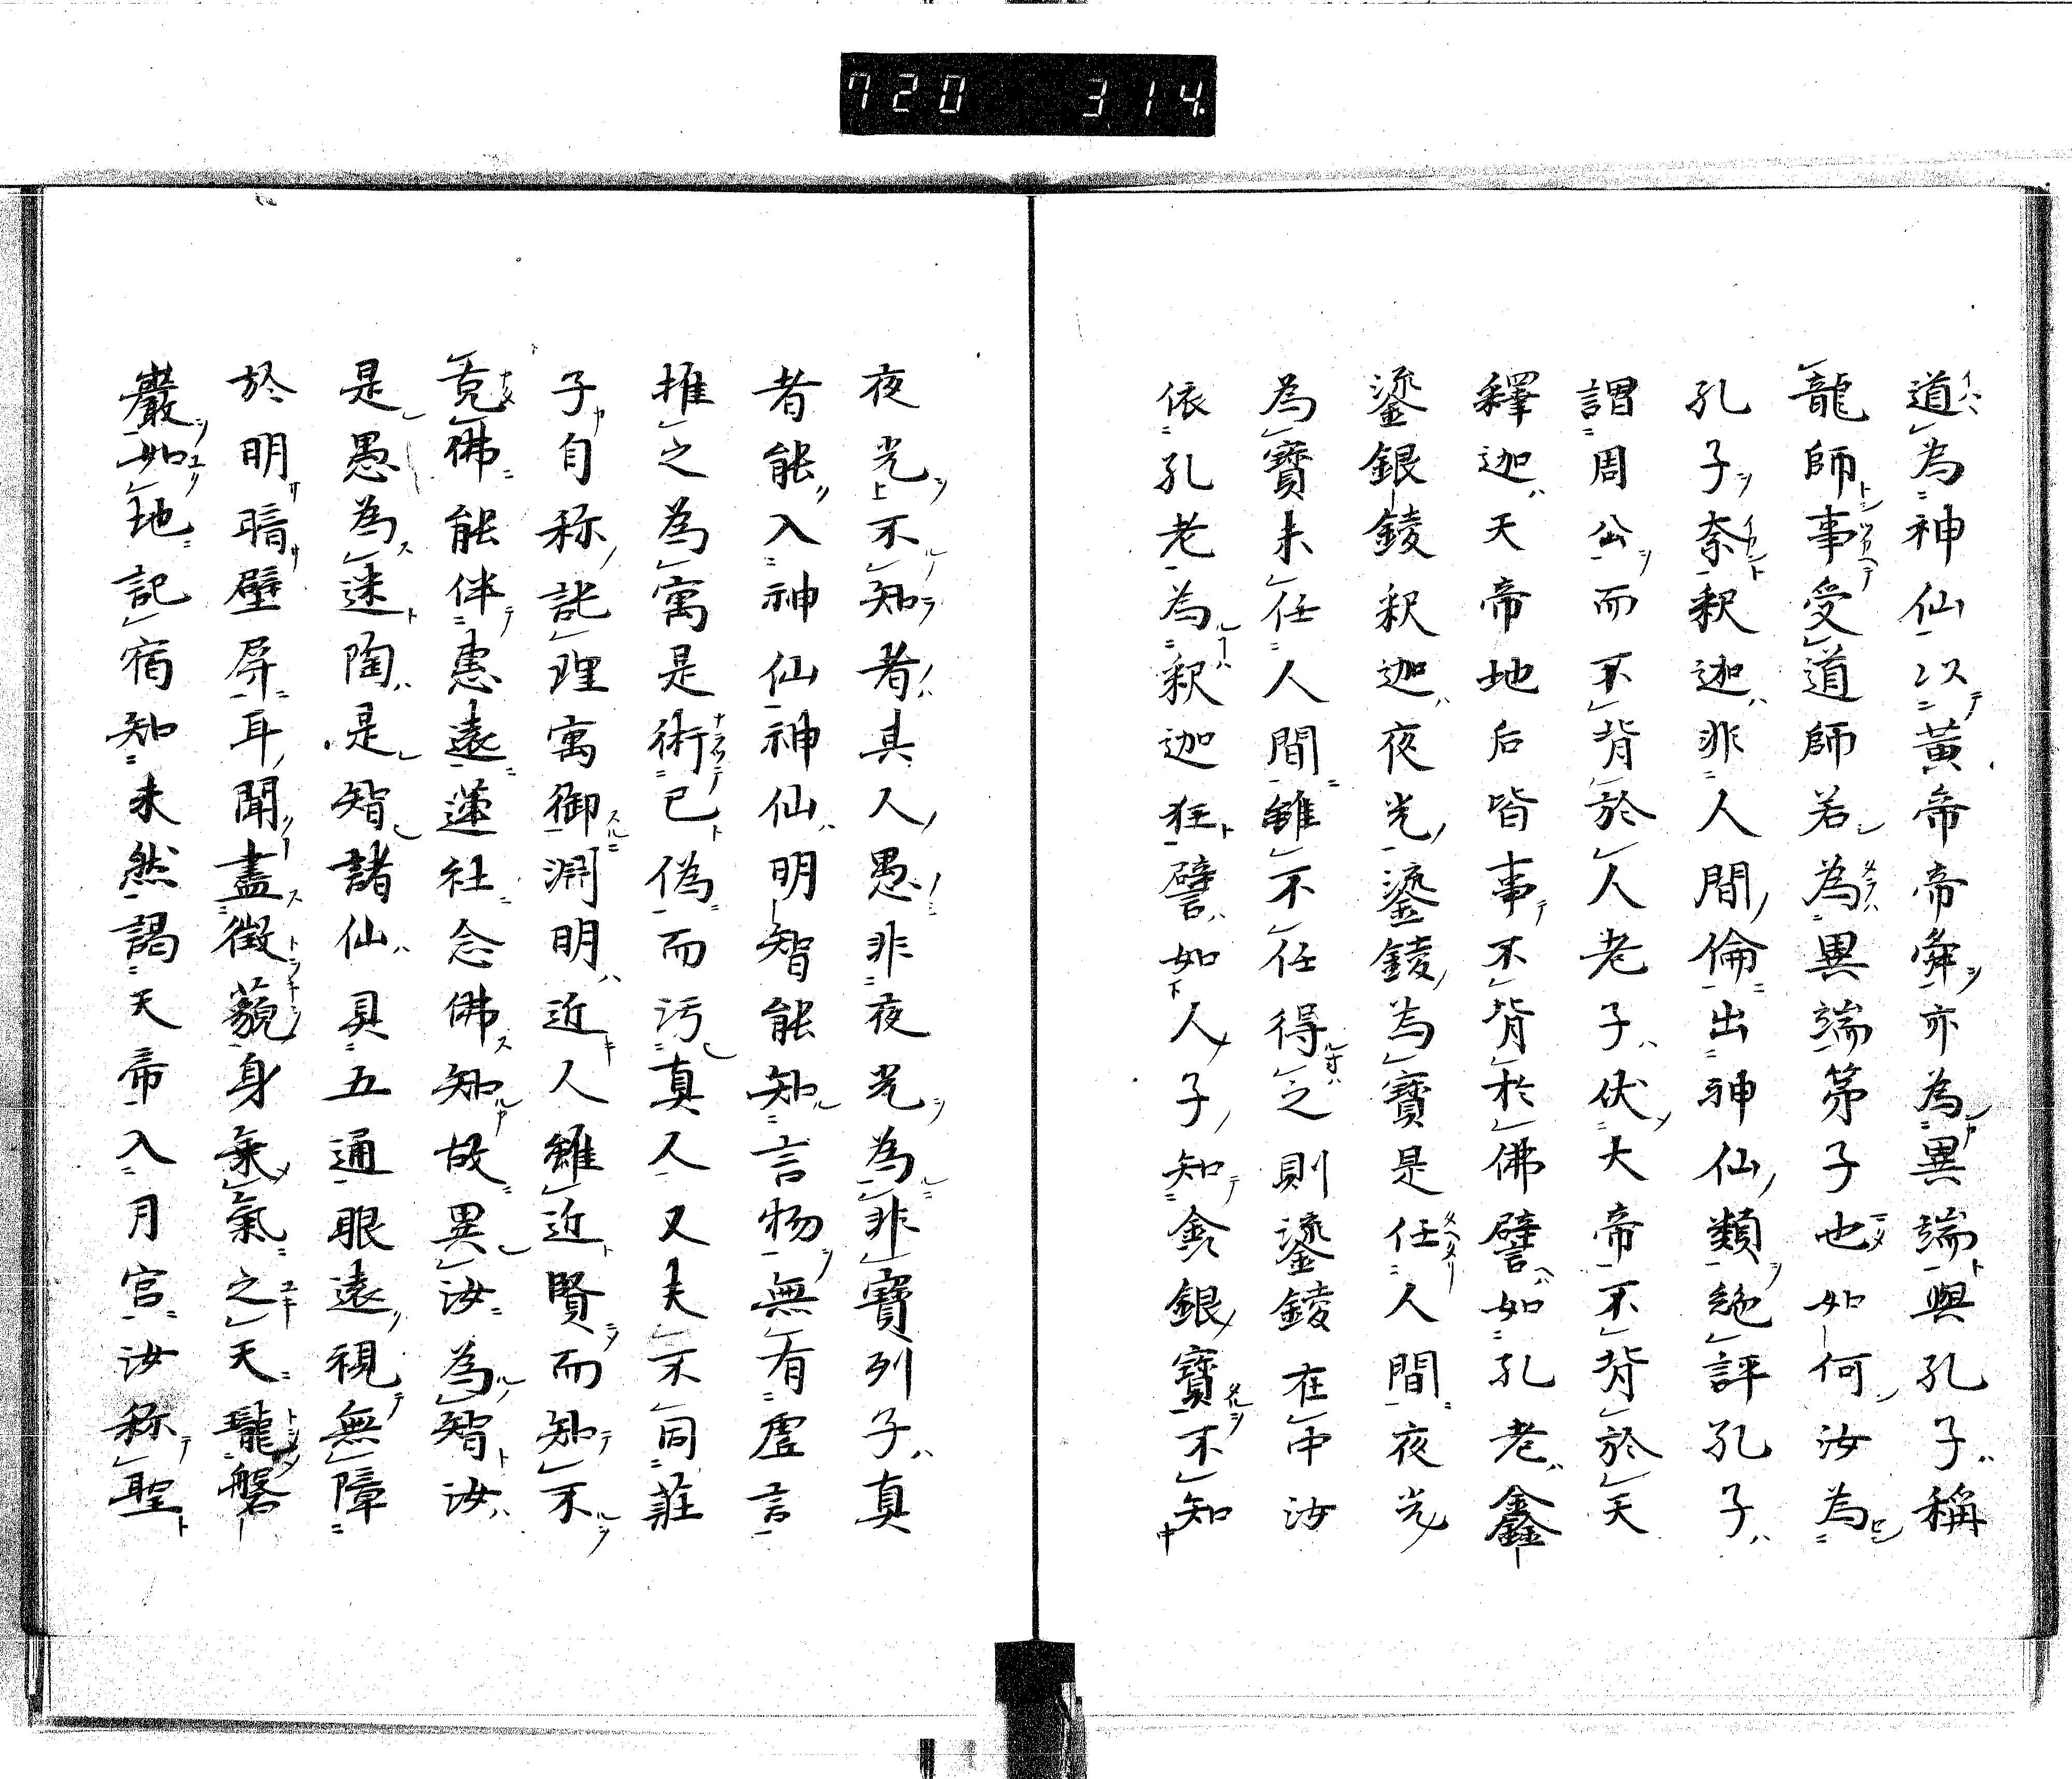 720 314
道為神仙以黃帝帝舜亦為異端與孔子稱
龍師事受道師若為異端苐子也如何汝為
孔子奈釈迦非人間倫出神仙類絶評孔子
謂周公而不背於人老子伏大帝不背於天
釋迦天帝地后皆事不背於佛譬如孔老鑫
鎏銀錂釈迦夜光鎏錂為寶是任人間夜光
為寶未任人間雖不任得之則鎏錂在中汝
依孔老為釈迦狂譬如人子知金銀寶不知
夜光不知者真人愚非夜光為非寶列子真
者能入神仙神仙明智能知言物無有虚言
推之為寓是術已偽而污真人又夫不同莊
子自称託理寓御淵明近人雖近賢而知不
竟佛能伴恵遠蓮社念佛知故異汝為智汝
是愚為迷陶是智諸仙具五通眼遠視無障
於明暗壁屏耳聞盡徴藐身乗氣之天龍磐
巖如地記宿知未然謁天帝入月宮汝称聖